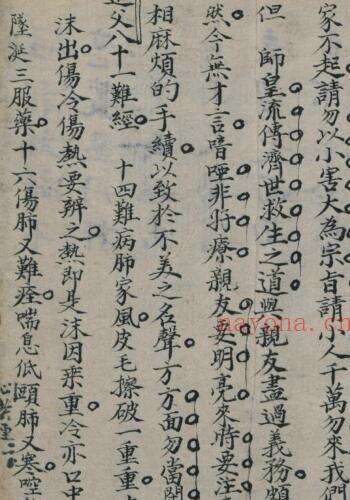 家不起請勿以小害大為宗旨請小人千萬勿來我們
但 師皇流傳濟世救生之道與親友盡過義務頗
然今無才一言喑啞非將療親友要明亮來時要注
相麻煩的手續以致於不美之名聲方方面勿當
父八十一難經 十四難病肺家風皮毛擦破一重重
沫出傷冷傷熱要辨之熱即是沫因乘重冷亦口中
墜涎三服藥十六傷肺又難痊喘息低頤肺又寒啌
nayona.cn